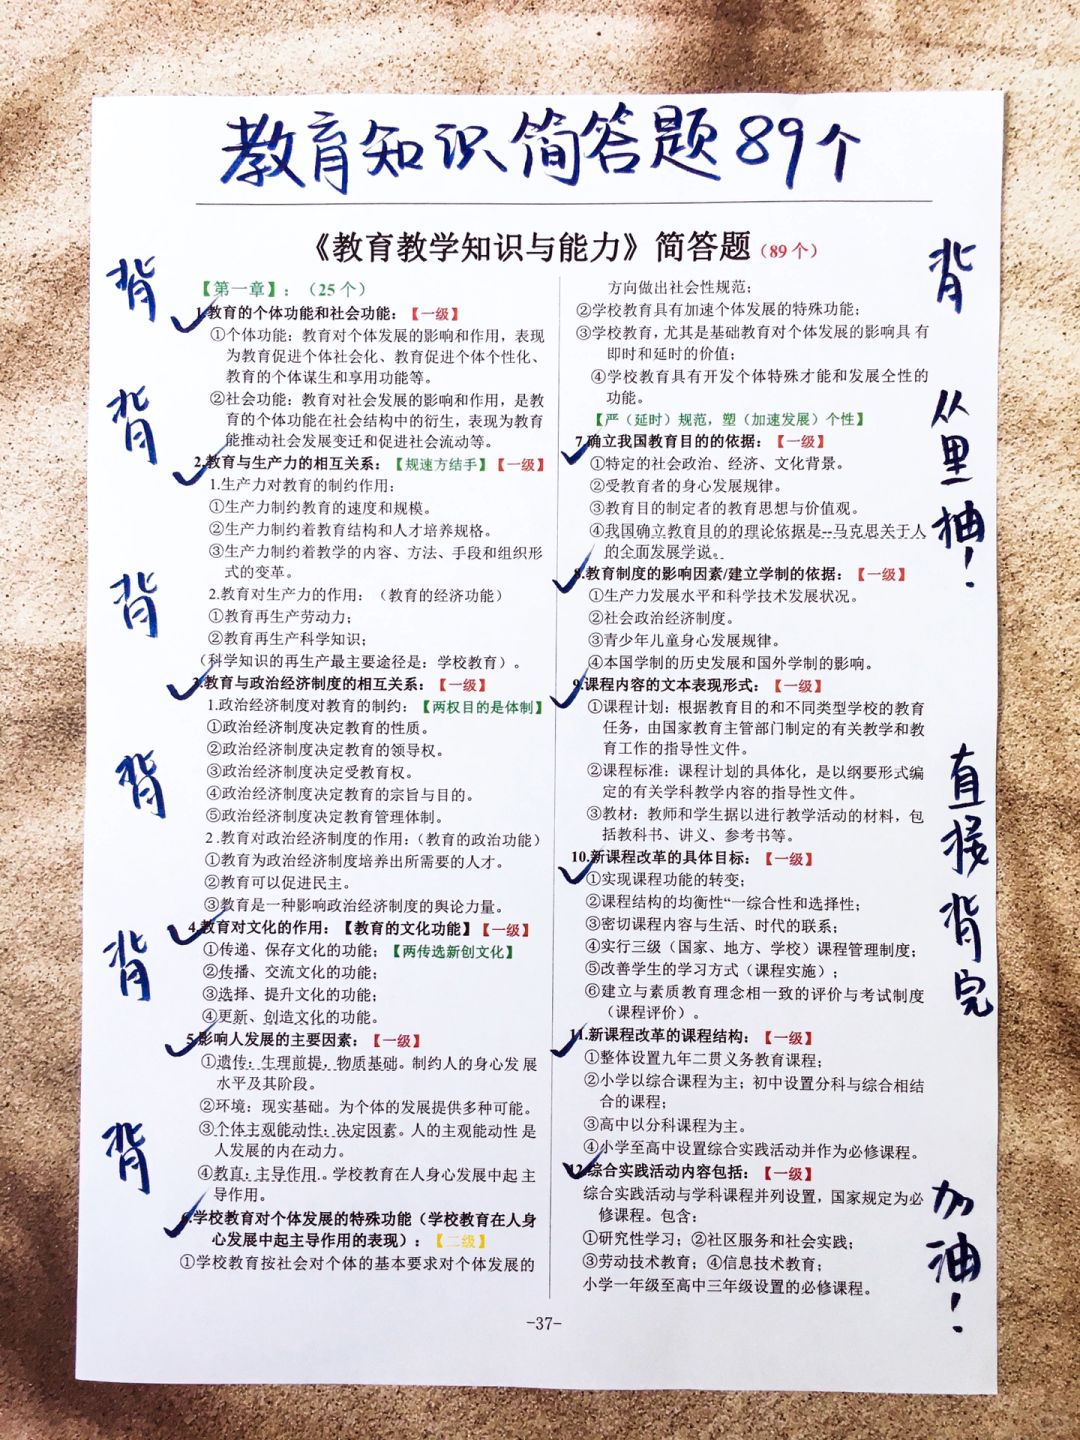 教育知识简答题89个
《教育教学知识与能力》简答题（89个）
【第一章】：（25个）
1.教育的个体功能和社会功能：【一级】
①个体功能：教育对个体发展的影响和作用，表现
为教育促进个体社会化、教育促进个体个性化、
教育的个体谋生和享用功能等。
②社会功能：教育对社会发展的影响和作用，是教
育的个体功能在社会结构中的衍生，表现为教育
能推动社会发展变迁和促进社会流动等。
2.教育与生产力的相互关系：【规速方结手】【一级】
1.生产力对教育的制约作用：
①生产力制约教育的速度和规模。
②生产力制约着教育结构和人才培养规格。
③生产力制约着教学的内容、方法、手段和组织形
式的变革。
2.教育对生产力的作用：（教育的经济功能）
①教育再生产劳动力；
②教育再生产科学知识；
（科学知识的再生产最主要途径是：学校教育）。
3.教育与政治经济制度的相互关系：【一级】
1.政治经济制度对教育的制约：【两权目的是体制】
①政治经济制度决定教育的性质。
②政治经济制度决定教育的领导权。
③政治经济制度决定受教育权。
④政治经济制度决定教育的宗旨与目的。
⑤政治经济制度决定教育管理体制。
2.教育对政治经济制度的作用：（教育的政治功能）
①教育为政治经济制度培养出所需要的人才。
②教育可以促进民主。
③教育是一种影响政治经济制度的舆论力量。
4.教育对文化的作用：【教育的文化功能】【一级】
①传递、保存文化的功能；【两传选新创文化】
②传播、交流文化的功能；
③选择、提升文化的功能；
④更新、创造文化的功能。
5.影响人发展的主要因素：【一级】
①遗传：生理前提，物质基础。制约人的身心发展
水平及其阶段。
②环境：现实基础。为个体的发展提供多种可能。
③个体主观能动性：决定因素。人的主观能动性是
人发展的内在动力。
④教直：主导作用。学校教育在人身心发展中起主
导作用。
6.学校教育对个体发展的特殊功能（学校教育在人身
心发展中起主导作用的表现）：【二级】
①学校教育按社会对个体的基本要求对个体发展的
方向做出社会性规范；
②学校教育具有加速个体发展的特殊功能；
③学校教育，尤其是基础教育对个体发展的影响具有
即时和延时的价值；
④学校教育具有开发个体特殊才能和发展仝性的
功能。
【严（延时）规范，塑（加速发展）个性】
7.确立我国教育目的的依据：【一级】
①特定的社会政治、经济、文化背景。
②受教育者的身心发展规律。
③教育目的制定者的教育思想与价值观。
④我国确立教育目的的理论依据是--马克思关于人
的全面发展学说。
8.教育制度的影响因素/建立学制的依据：【一级】
①生产力发展水平和科学技术发展状况。
②社会政治经济制度。
③青少年儿童身心发展规律。
④本国学制的历史发展和国外学制的影响。
9.课程内容的文本表现形式：【一级】
①课程计划：根据教育目的和不同类型学校的教育
任务，由国家教育主管部门制定的有关教学和教
育工作的指导性文件。
②课程标准：课程计划的具体化，是以纲要形式编
定的有关学科教学内容的指导性文件。
③教材：教师和学生据以进行教学活动的材料，包
括教科书、讲义、参考书等。
10.新课程改革的具体目标：【一级】
①实现课程功能的转变；
②课程结构的均衡性“一综合性和选择性；
③密切课程内容与生活、时代的联系；
④实行三级（国家、地方、学校）课程管理制度；
⑤改善学生的学习方式（课程实施）；
⑥建立与素质教育理念相一致的评价与考试制度
（课程评价）。
11.新课程改革的课程结构：【一级】
①整体设置九年二贯义务教育课程；
②小学以综合课程为主；初中设置分科与综合相结
合的课程；
③高中以分科课程为主。
④小学至高中设置综合实践活动并作为必修课程。
12.综合实践活动内容包括：【一级】
综合实践活动与学科课程并列设置，国家规定为必
修课程。包含：
①研究性学习；②社区服务和社会实践；
③劳动技术教育；④信息技术教育；
小学一年级至高中三年级设置的必修课程。
-37-
背
背
背
背
背
背
背
从里抽！
直接背完
加油！